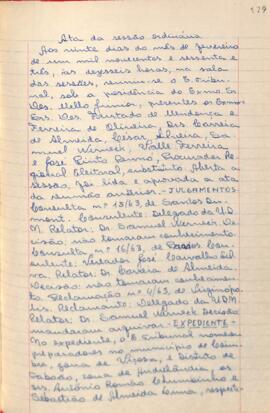 129
Ata da sessão ordinária
Aos vinte dias do mês de fevereiro
de um mil novecentos e sessenta e
três, às dezesseis horas, na sala
das sessões, reuniu-se o E. Tribu-
nal, sob a presidência do Exmo. Sr.
Des. Mello Junior, presentes os Exmos.
Srs. Des. Furtado de Mendonça e
Ferreira de Oliveira, Drs. Correia
de Almeida, César Silveira, Sa-
muel Werneck, Valle Ferreira
e José Pinto Renno, Procurador Re-
gional Eleitoral, substituto. Aberta a
sessão, foi lida e aprovada a ata
da reunião anterior. - JULGAMENTOS -
Consulta nº 13/63, de Santos Du-
mont. Consulente: Delegado da U.D.
N. Relator: Dr. Samuel Werneck. De-
cisão: não tomaram conhecimento.
Consulta nº 16/63, de Con-
sulente: Vereador José Carvalho Sil-
va. Relator: Dr. Correia de Almeida.
Decisão: não tomaram conhecimen-
to. Reclamação nº 4/63, de Virginópo-
lis. Reclamante: Delegado da UDN
Relator: Dr. Samuel Werneck Decisão:
mandaram arquivar. - EXPEDIENTE -
No expediente, o E. Tribunal nomeou
preparadores no município de
zona de Viçosa, e Distrito de
zona de Andrelândia, os
srs. Antônio Romão e
Sebastião de Almeida respecti-